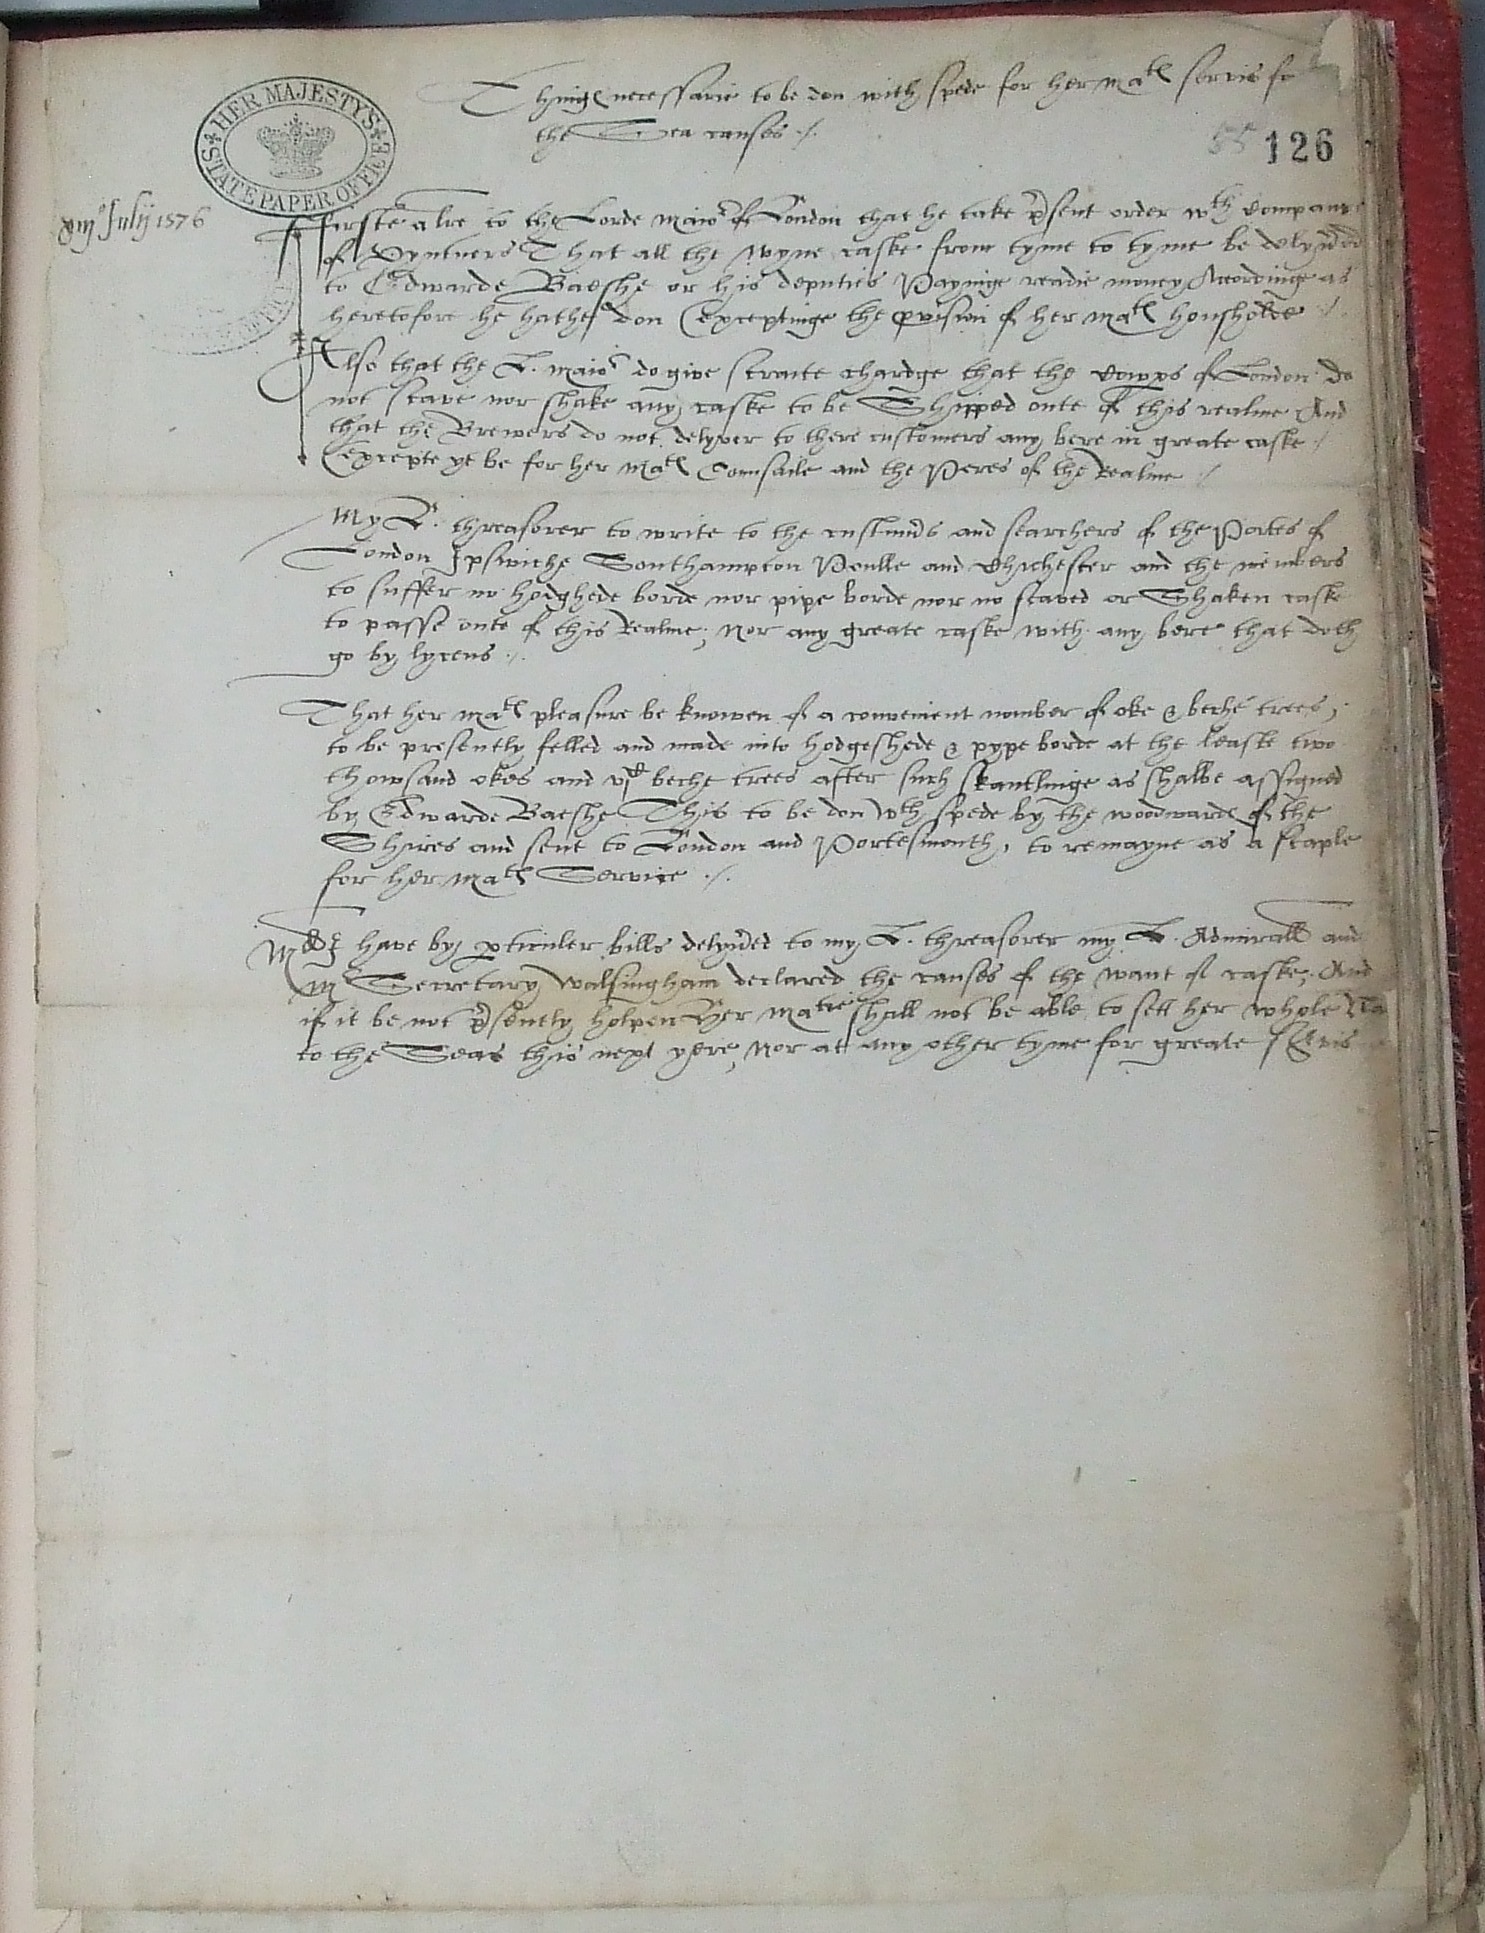 Thinges necessarie to be don with spede for her Mates servis fo
the Sea causes ./.
55 126
HER MAJESTY'S STATE PAPER OFFICE
xiijo Julij 1576
Firste a lre to the Lorde Maior of London that he take psent order wth Companie
of Vyntners That all the wyne caske from tyme to tyme be delyvered
to Edwarde Baeshe or his deputies Payinge readie money Accordinge as
heretofore he hathe don Exceptinge the pvision of her Mates housholde ./.
Also that the L. maior do give straite chardge that the Cowps of London do
not stave nor shake any caske to be Shipped oute of this realme And
that the Brewers do not delyver to there customers any bere in greate caske /
Excepte yt be for her Mates Counsaile and the Peres of the Realme ./
My L. threasorer to write to the custumrs and searchers of the Portes of
London Ipswiche Southampton Poulle and Chichester and the members
to suffer no hodghede borde nor pipe borde nor no staved or Shaken caske
to passe oute of this Realme; Nor any greate caske with any bere that doth
go by lycens ./.
That her Mates pleasure be knowen of a convenient nomber of oke & beche trees,
to be presently felled and made into hodgeshede & pype borde at the leaste two
thowsand okes and vc beche trees after such skantlinge as shalbe assigned
by Edwarde Baeshe This to be don wth spede by the woodwardes of the
Shires and sent to London and Portesmouth, to remayne as a staple
for her Mates Service ./.
Mdd I have by pticuler bills delyvred to my L. threasorer my L. Admirall and
Mr Secretary Walsingham declared the causes of the want of caske; And
if it be not psently holpen Her Matie shall not be able to sett her whole Na
to the Seas this next yere, Nor at any other tyme for greate servis